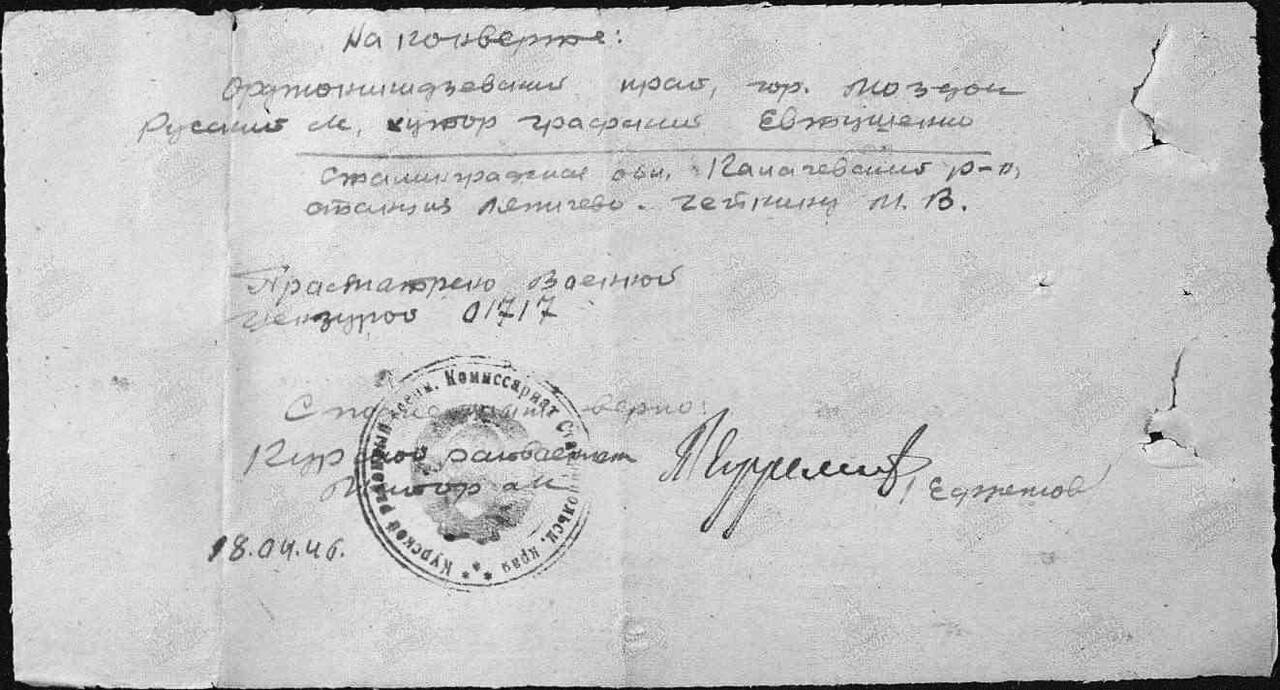 На конверте:
Орджоникидзевский край, гор. Моздок
Русский м, хутор графский Евтушенко
Сталинградская обл. Калачевский р-н,
станция Ляпичево. Четкину М. В.
Прасматрено Военной
цензурой 01717
С подлинным верно:
Курской райвоенком
Майор
18.04.46.
Курской районный военн. Комиссариат Ставропольск. края